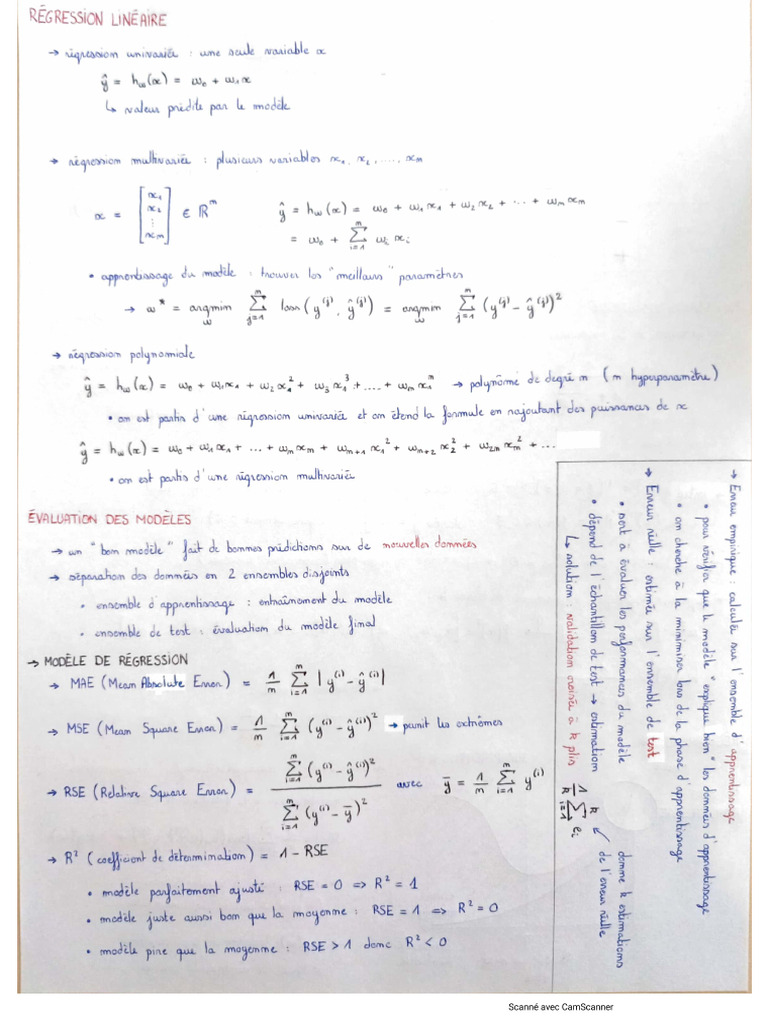 RÉGRESSION LINÉAIRE
→ régression univariée : une seule variable x
ŷ = h_ω(x) = ω₀ + ω₁x
↳ valeur prédite par le modèle
→ régression multivariée : plusieurs variables x₁, x₂, ...., xₘ
x = [x₁ x₂ ⋮ xₘ] ∈ ℝᵐ
ŷ = h_ω(x) = ω₀ + ω₁x₁ + ω₂x₂ + ... + ωₘxₘ
= ω₀ + Σ_{i=1}^{m} ωᵢxᵢ
• apprentissage du modèle : trouver les "meilleurs" paramètres
→ ω* = argmin_ω Σ_{j=1}^{m} loss(y^(j), ŷ^(j)) = argmin_ω Σ_{j=1}^{m} (y^(j) - ŷ^(j))²
→ régression polynomiale
ŷ = h_ω(x) = ω₀ + ω₁x₁ + ω₂x₁² + ω₃x₁³ + .... + ωₘx₁ᵐ → polynôme de degré m (m hyperparamètre)
• on est partis d'une régression univariée et on étend la formule en rajoutant des puissances de x
ŷ = h_ω(x) = ω₀ + ω₁x₁ + ... + ωₘxₘ + ω_{m+1}x₁² + ω_{m+2}x₂² + ω_{2m}xₘ² + ...
• on est partis d'une régression multivariée
ÉVALUATION DES MODÈLES
→ un "bon modèle" fait de bonnes prédictions sur de nouvelles données
→ séparation des données en 2 ensembles disjoints
• ensemble d'apprentissage : entraînement du modèle
• ensemble de test : évaluation du modèle final
→ MODÈLE DE RÉGRESSION
→ MAE (Mean Absolute Error) = 1/m Σ_{i=1}^{m} |y^(i) - ŷ^(i)|
→ MSE (Mean Square Error) = 1/m Σ_{i=1}^{m} (y^(i) - ŷ^(i))² → punit les extrêmes
→ RSE (Relative Square Error) = Σ_{i=1}^{m} (y^(i) - ŷ^(i))² / Σ_{i=1}^{m} (y^(i) - ȳ)² avec ȳ = 1/m Σ_{i=1}^{m} y^(i)
→ R² (coefficient de détermination) = 1 - RSE
• modèle parfaitement ajusté : RSE = 0 => R² = 1
• modèle juste aussi bon que la moyenne : RSE = 1 => R² = 0
• modèle pire que la moyenne : RSE > 1 donc R² < 0
→ Erreur empirique : calculée sur l'ensemble d'apprentissage
• pour vérifier que le modèle "explique bien" les données d'apprentissage
• on cherche à la minimiser lors de la phase d'apprentissage
→ Erreur réelle : estimée sur l'ensemble de test
• sert à évaluer les performances du modèle
• dépend de l'échantillon de test → estimation
↳ solution : validation croisée à k plis
donne k estimations
de l'erreur réelle
1/k Σ_{i=1}^{k} eᵢ
Scanné avec CamScanner